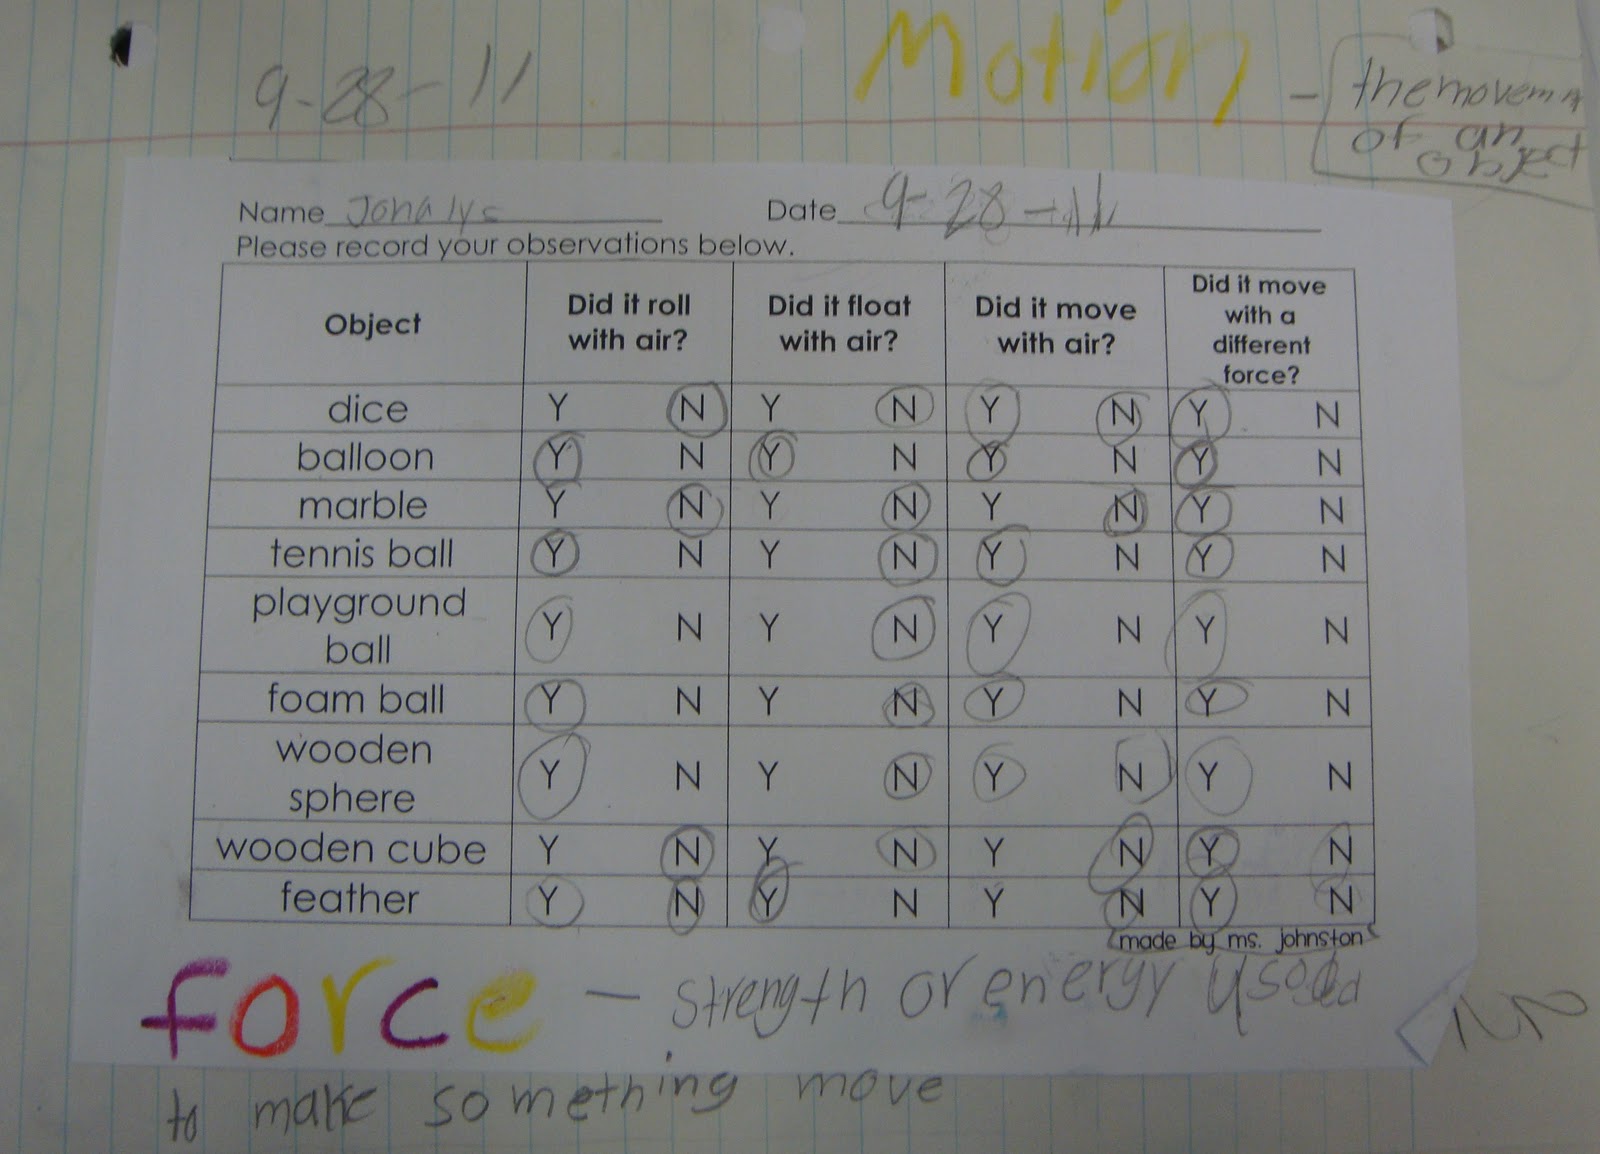 9-28-11
Motion - the movem
of an
object
Name Jonalys Date 9-28-11
Please record your observations below.
Object Did it roll with air? Did it float with air? Did it move with air? Did it move with a different force?
dice Y N Y N Y N Y N
balloon Y N Y N Y N Y N
marble Y N Y N Y N Y N
tennis ball Y N Y N Y N Y N
playground ball Y N Y N Y N Y N
foam ball Y N Y N Y N Y N
wooden sphere Y N Y N Y N Y N
wooden cube Y N Y N Y N Y N
feather Y N Y N Y N Y N
made by ms. johnston
force - strength or energy used
to make something move